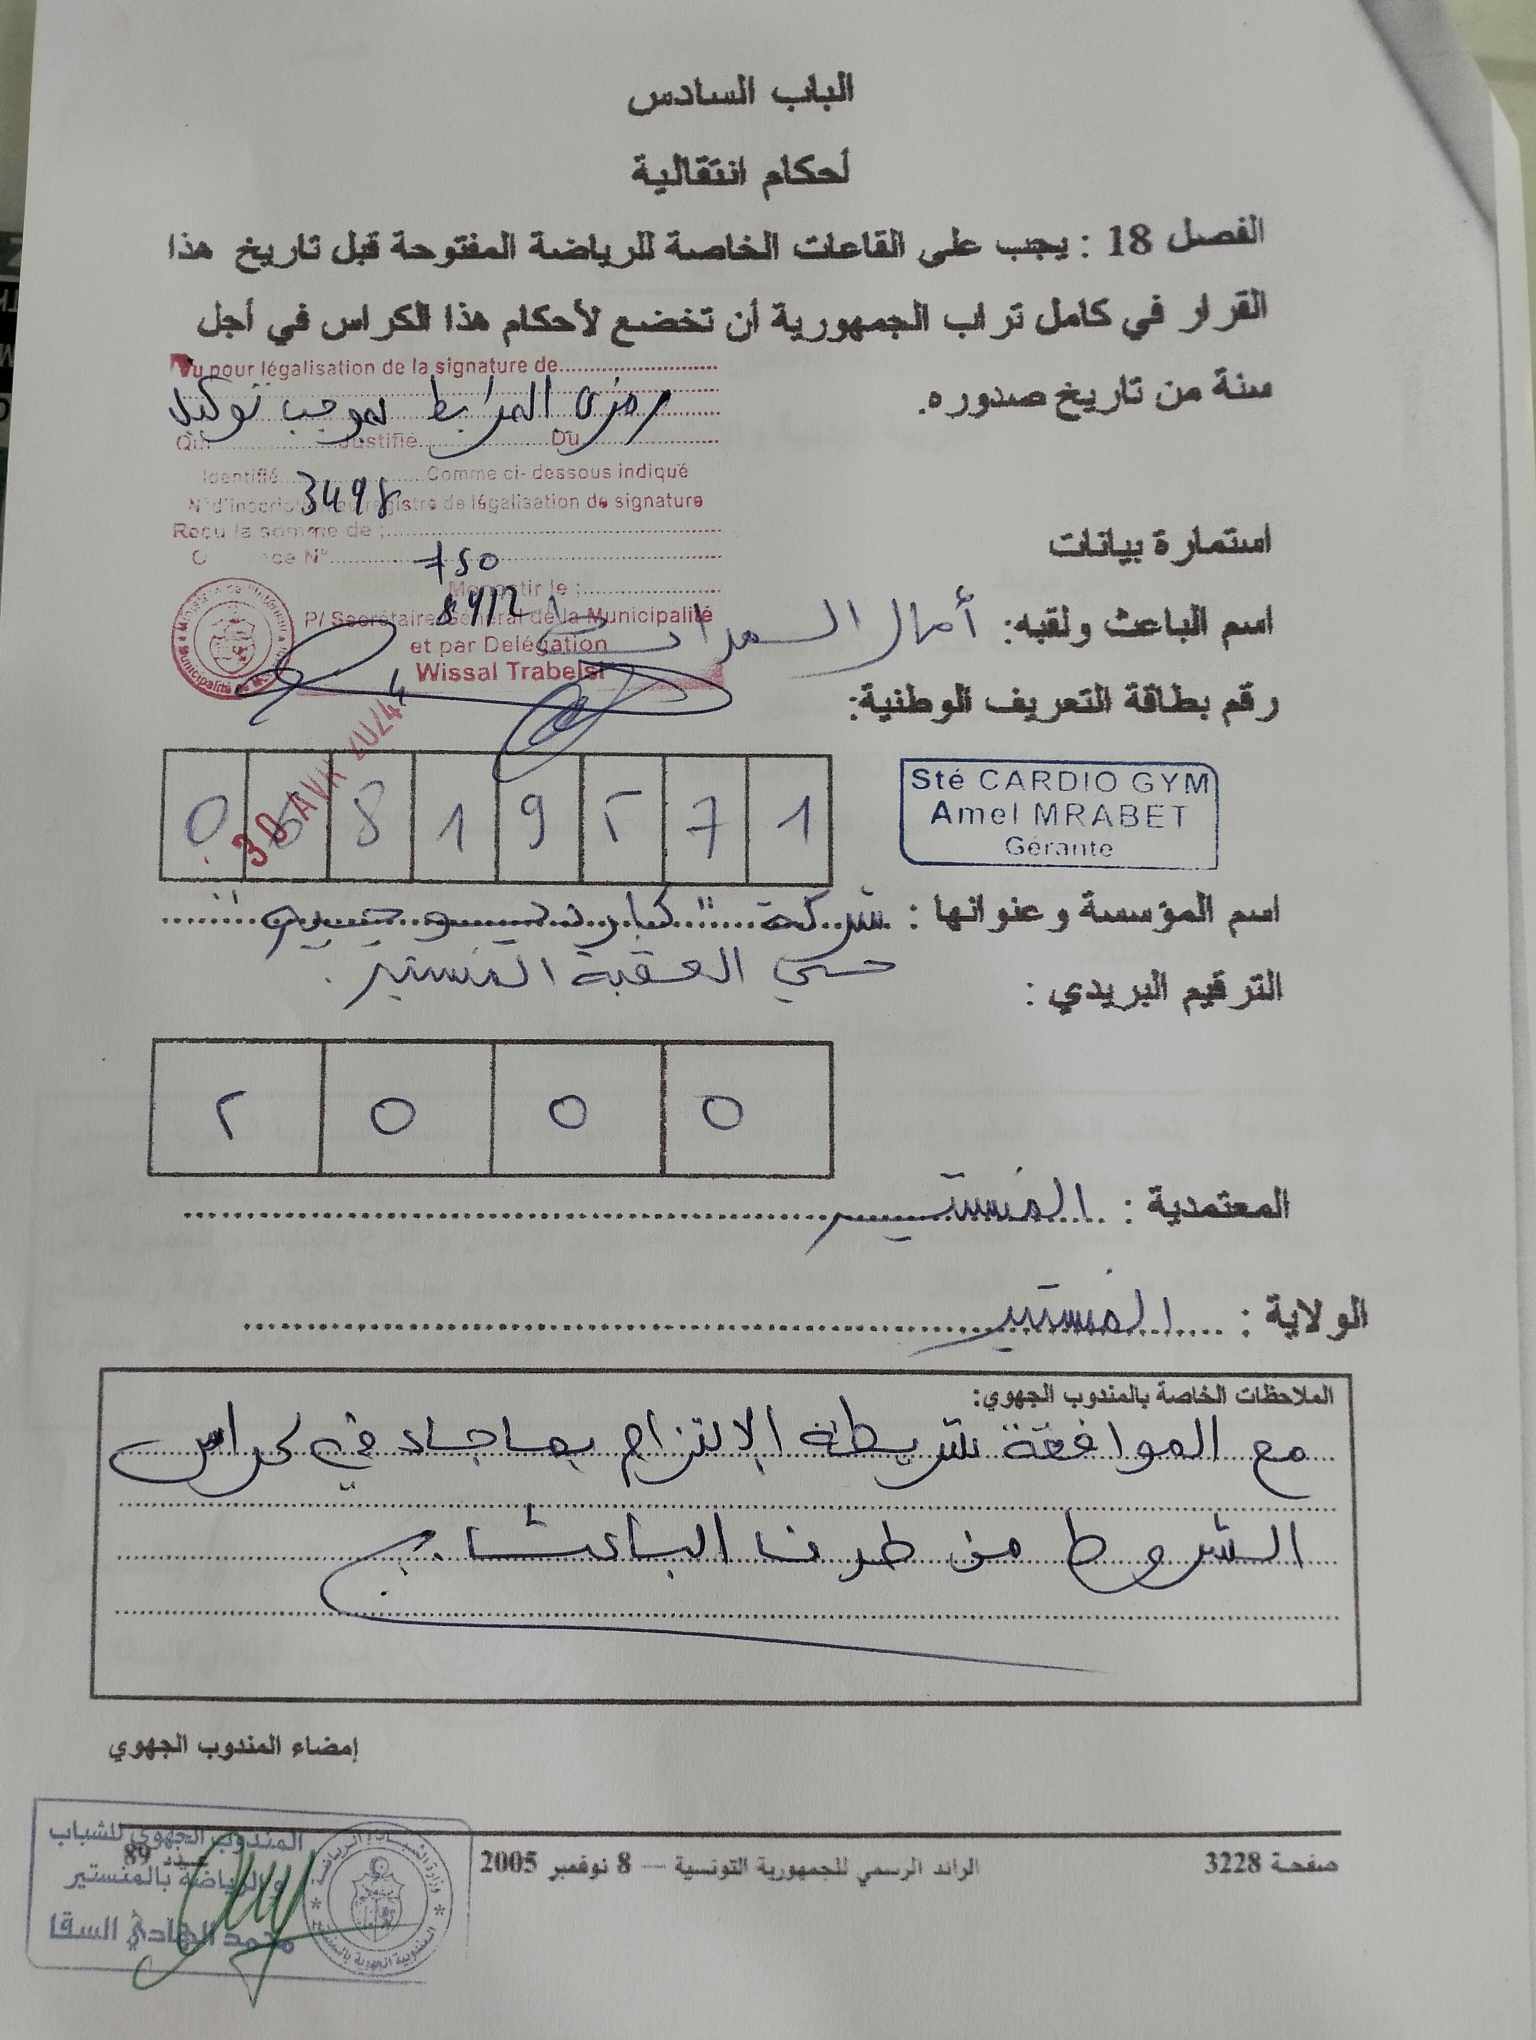 الباب السادس
أحكام انتقالية
الفصل 18 : يجب على القاعات الخاصة للرياضة المفتوحة قبل تاريخ هذا
القرار في كامل تراب الجمهورية أن تخضع لأحكام هذا الكراس في أجل
سنة من تاريخ صدوره.
Vu pour légalisation de la signature de
رمزي المرابط بموجب توكيل
Qui Justifie Du
Identifié Comme ci- dessous indiqué
N° d'inscription au registre de légalisation de signature
3498
Reçu la somme de :
750
Monastir le :
P/ Secrétaire Général de la Municipalité
et par Delégation
Wissal Trabelsi
30 AVR 2024
استمارة بيانات
اسم الباعث ولقبه: أمال المرابط
رقم بطاقة التعريف الوطنية:
0 6 8 1 9 2 7 1
Sté CARDIO GYM
Amel MRABET
Gérante
اسم المؤسسة وعنوانها : شركة " كارديو جيم "
حي العقبة المنستير .
الترقيم البريدي :
5 0 0 0
المعتمدية : المنستير
الولاية : المنستير
الملاحظات الخاصة بالمندوب الجهوي:
مع الموافقة شريطة الإلتزام بما جاء في كراس
الشروط من طرف الباعث
إمضاء المندوب الجهوي
صفحة 3228
الرائد الرسمي للجمهورية التونسية — 8 نوفمبر 2005
عدد 89
المندوب الجهوي للشباب
و الرياضة بالمنستير
محمد الهادي السقا